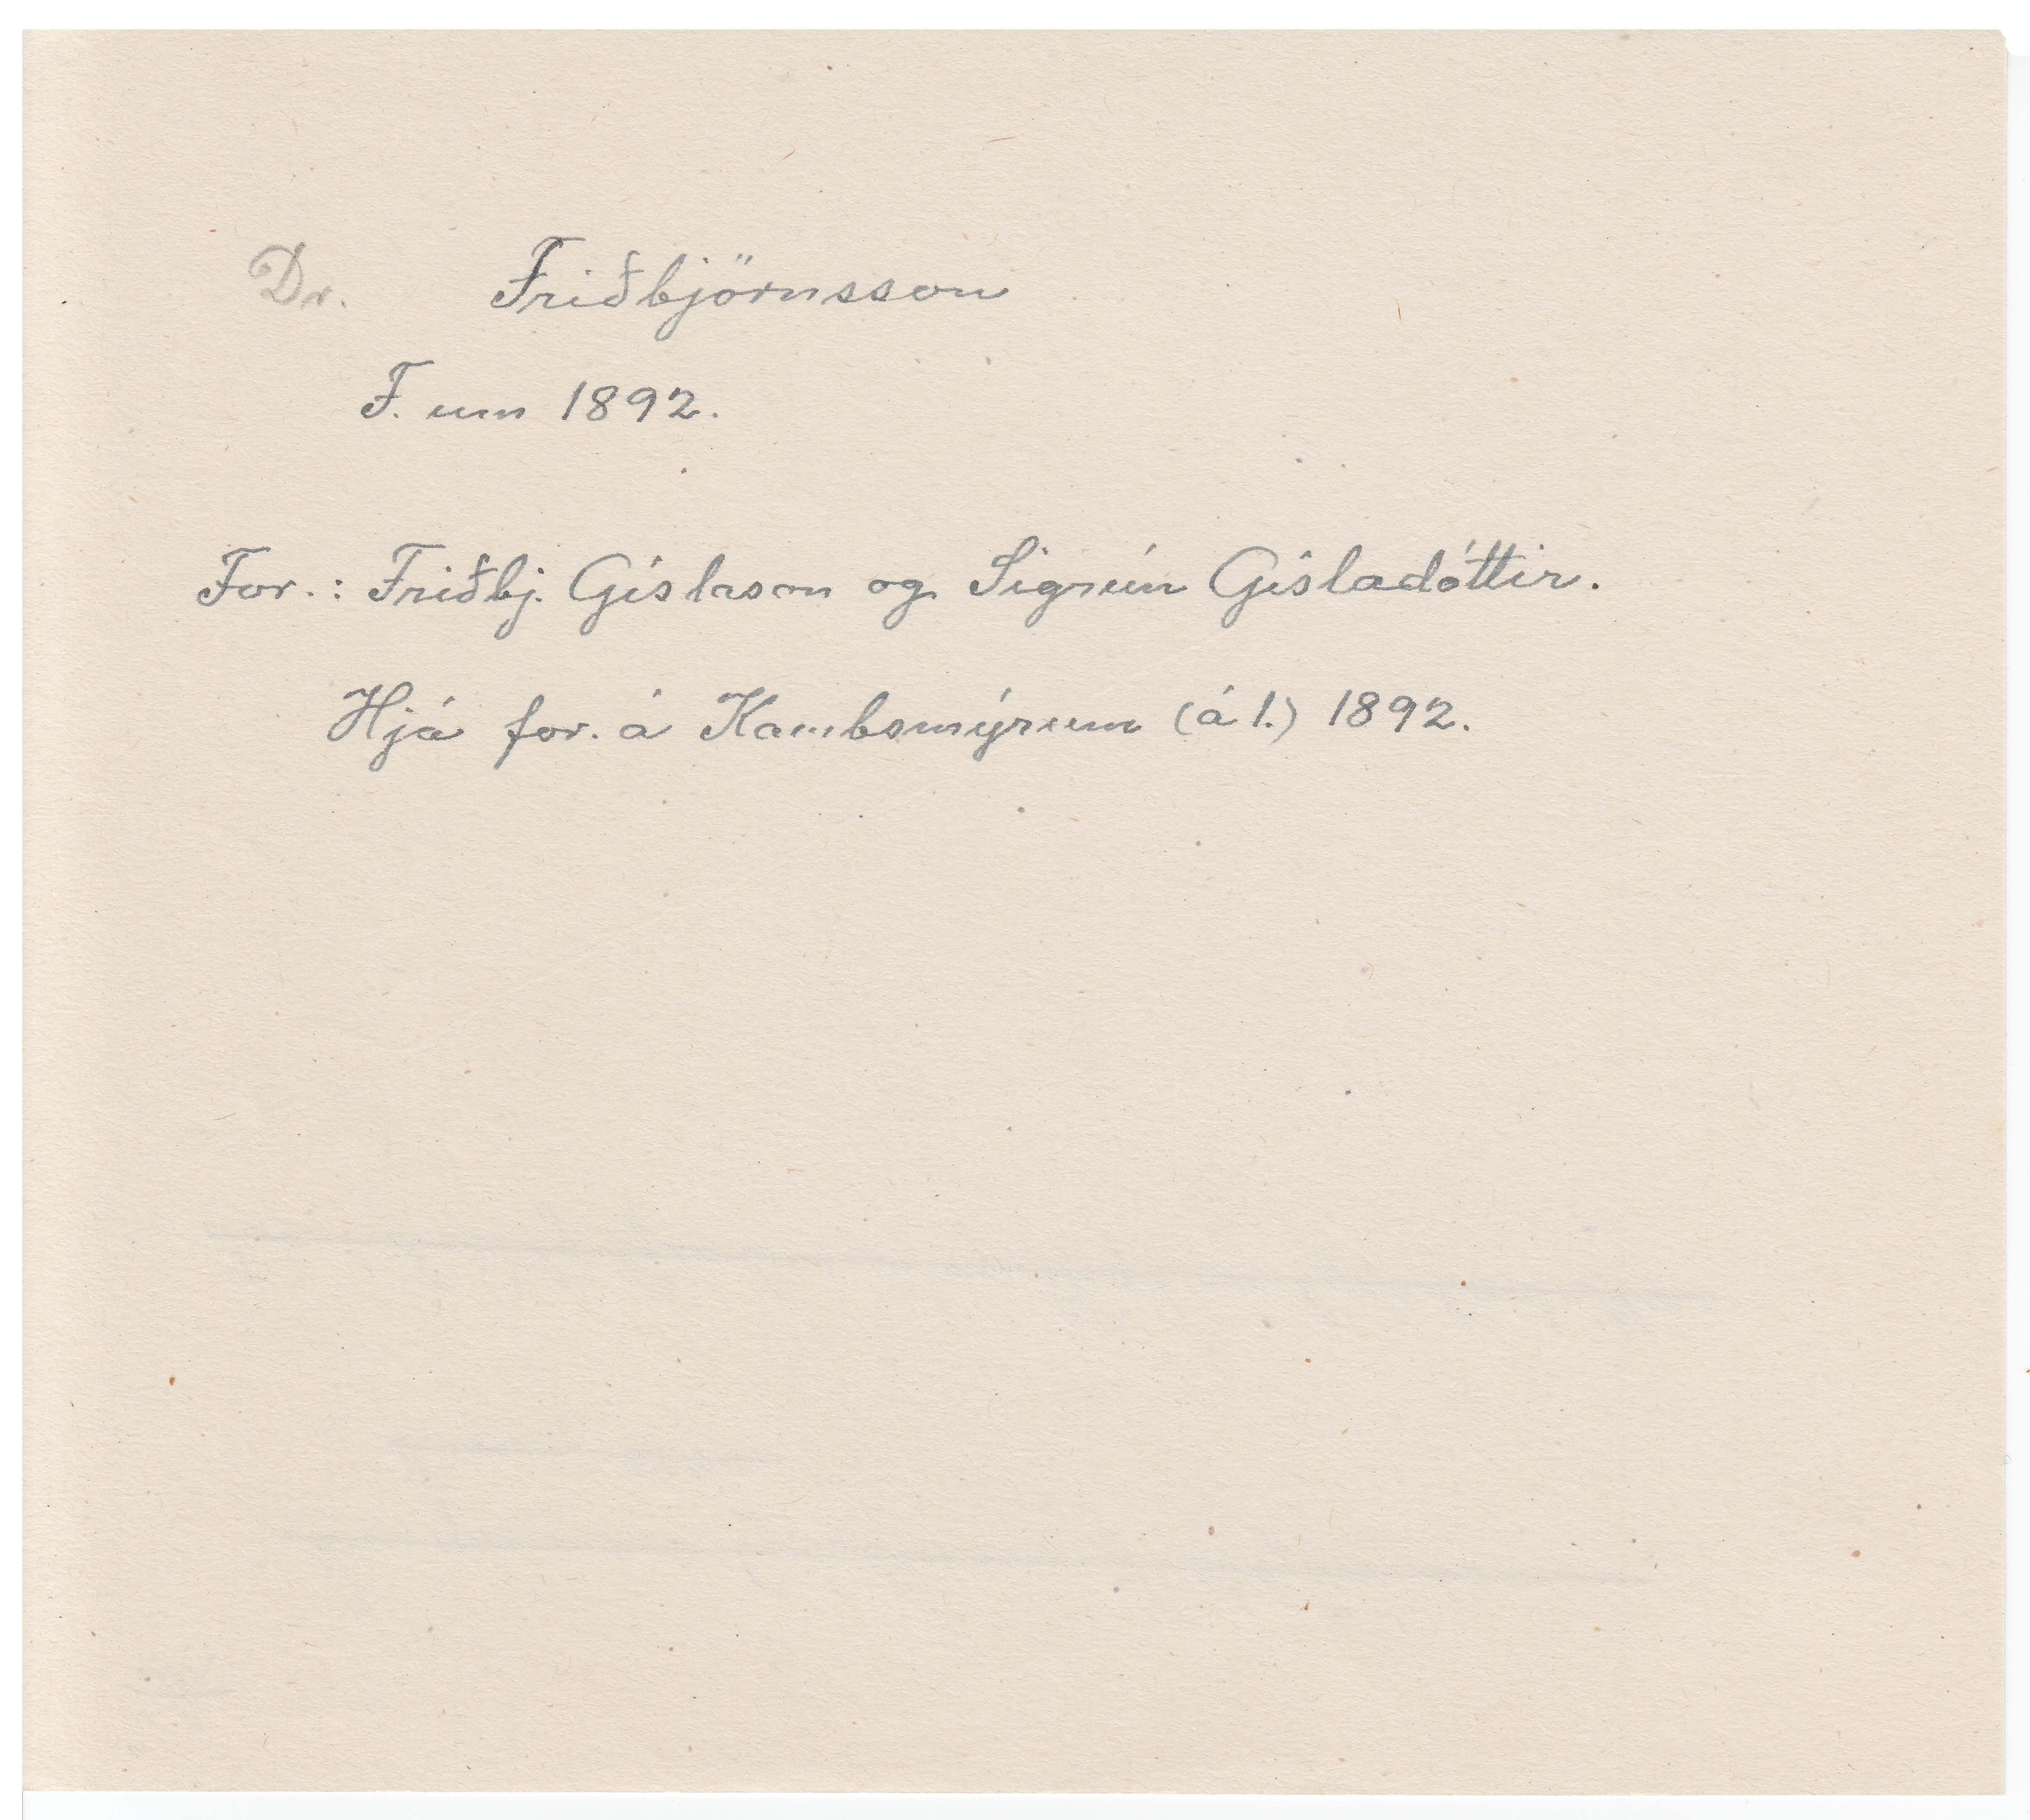 Dr. Friðbjörnsson
F. um 1892.
For.: Friðbj. Gíslason og Sigrún Gísladóttir.
Hjá for. á Kambsmýrum (á 1.) 1892.